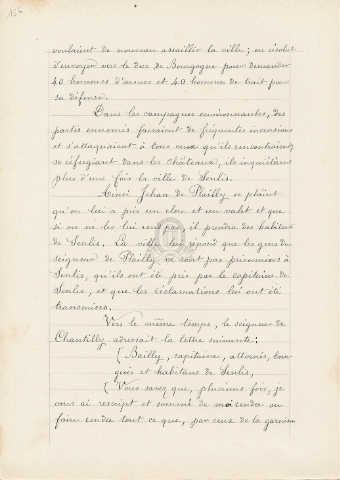 156
voulaient de nouveau assaillir la ville ; on résolut
d'envoyer vers le duc de Bourgogne pour demander
40 hommes d'armes et 40 hommes de trait pour
sa défense.
Dans les campagnes environnantes, des
partis ennemis faisaient de fréquentes incursions
et s'attaquaient à tous ceux qu'ils rencontraient,
se réfugiant dans les châteaux, ils inquiétèrent
plus d'une fois la ville de Senlis.
Ainsi Jehan de Plailly se plaint
qu'on lui a pris un clerc et un valet et que
si on ne les lui rend pas, il prendra des habitans
de Senlis. La ville lui répond que les gens du
seigneur de Plailly ne sont pas prisonniers à
Senlis, qu'ils ont été pris par le capitaine de
Senlis, et que les réclamations lui ont été
transmises.
Vers le même temps, le seigneur de
Chantilly adressait la lettre suivante :
{ Bailly, capitaine, attornés, bour-
gois et habitans de Senlis,
{ Vous savez que, plusieurs fois, je
vous ai rescript et sommé de moi rendre ou
faire rendre tout ce que, par ceux de la garnison